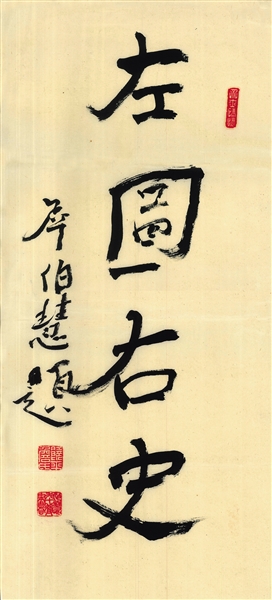 左圖右史
詹伯慧題